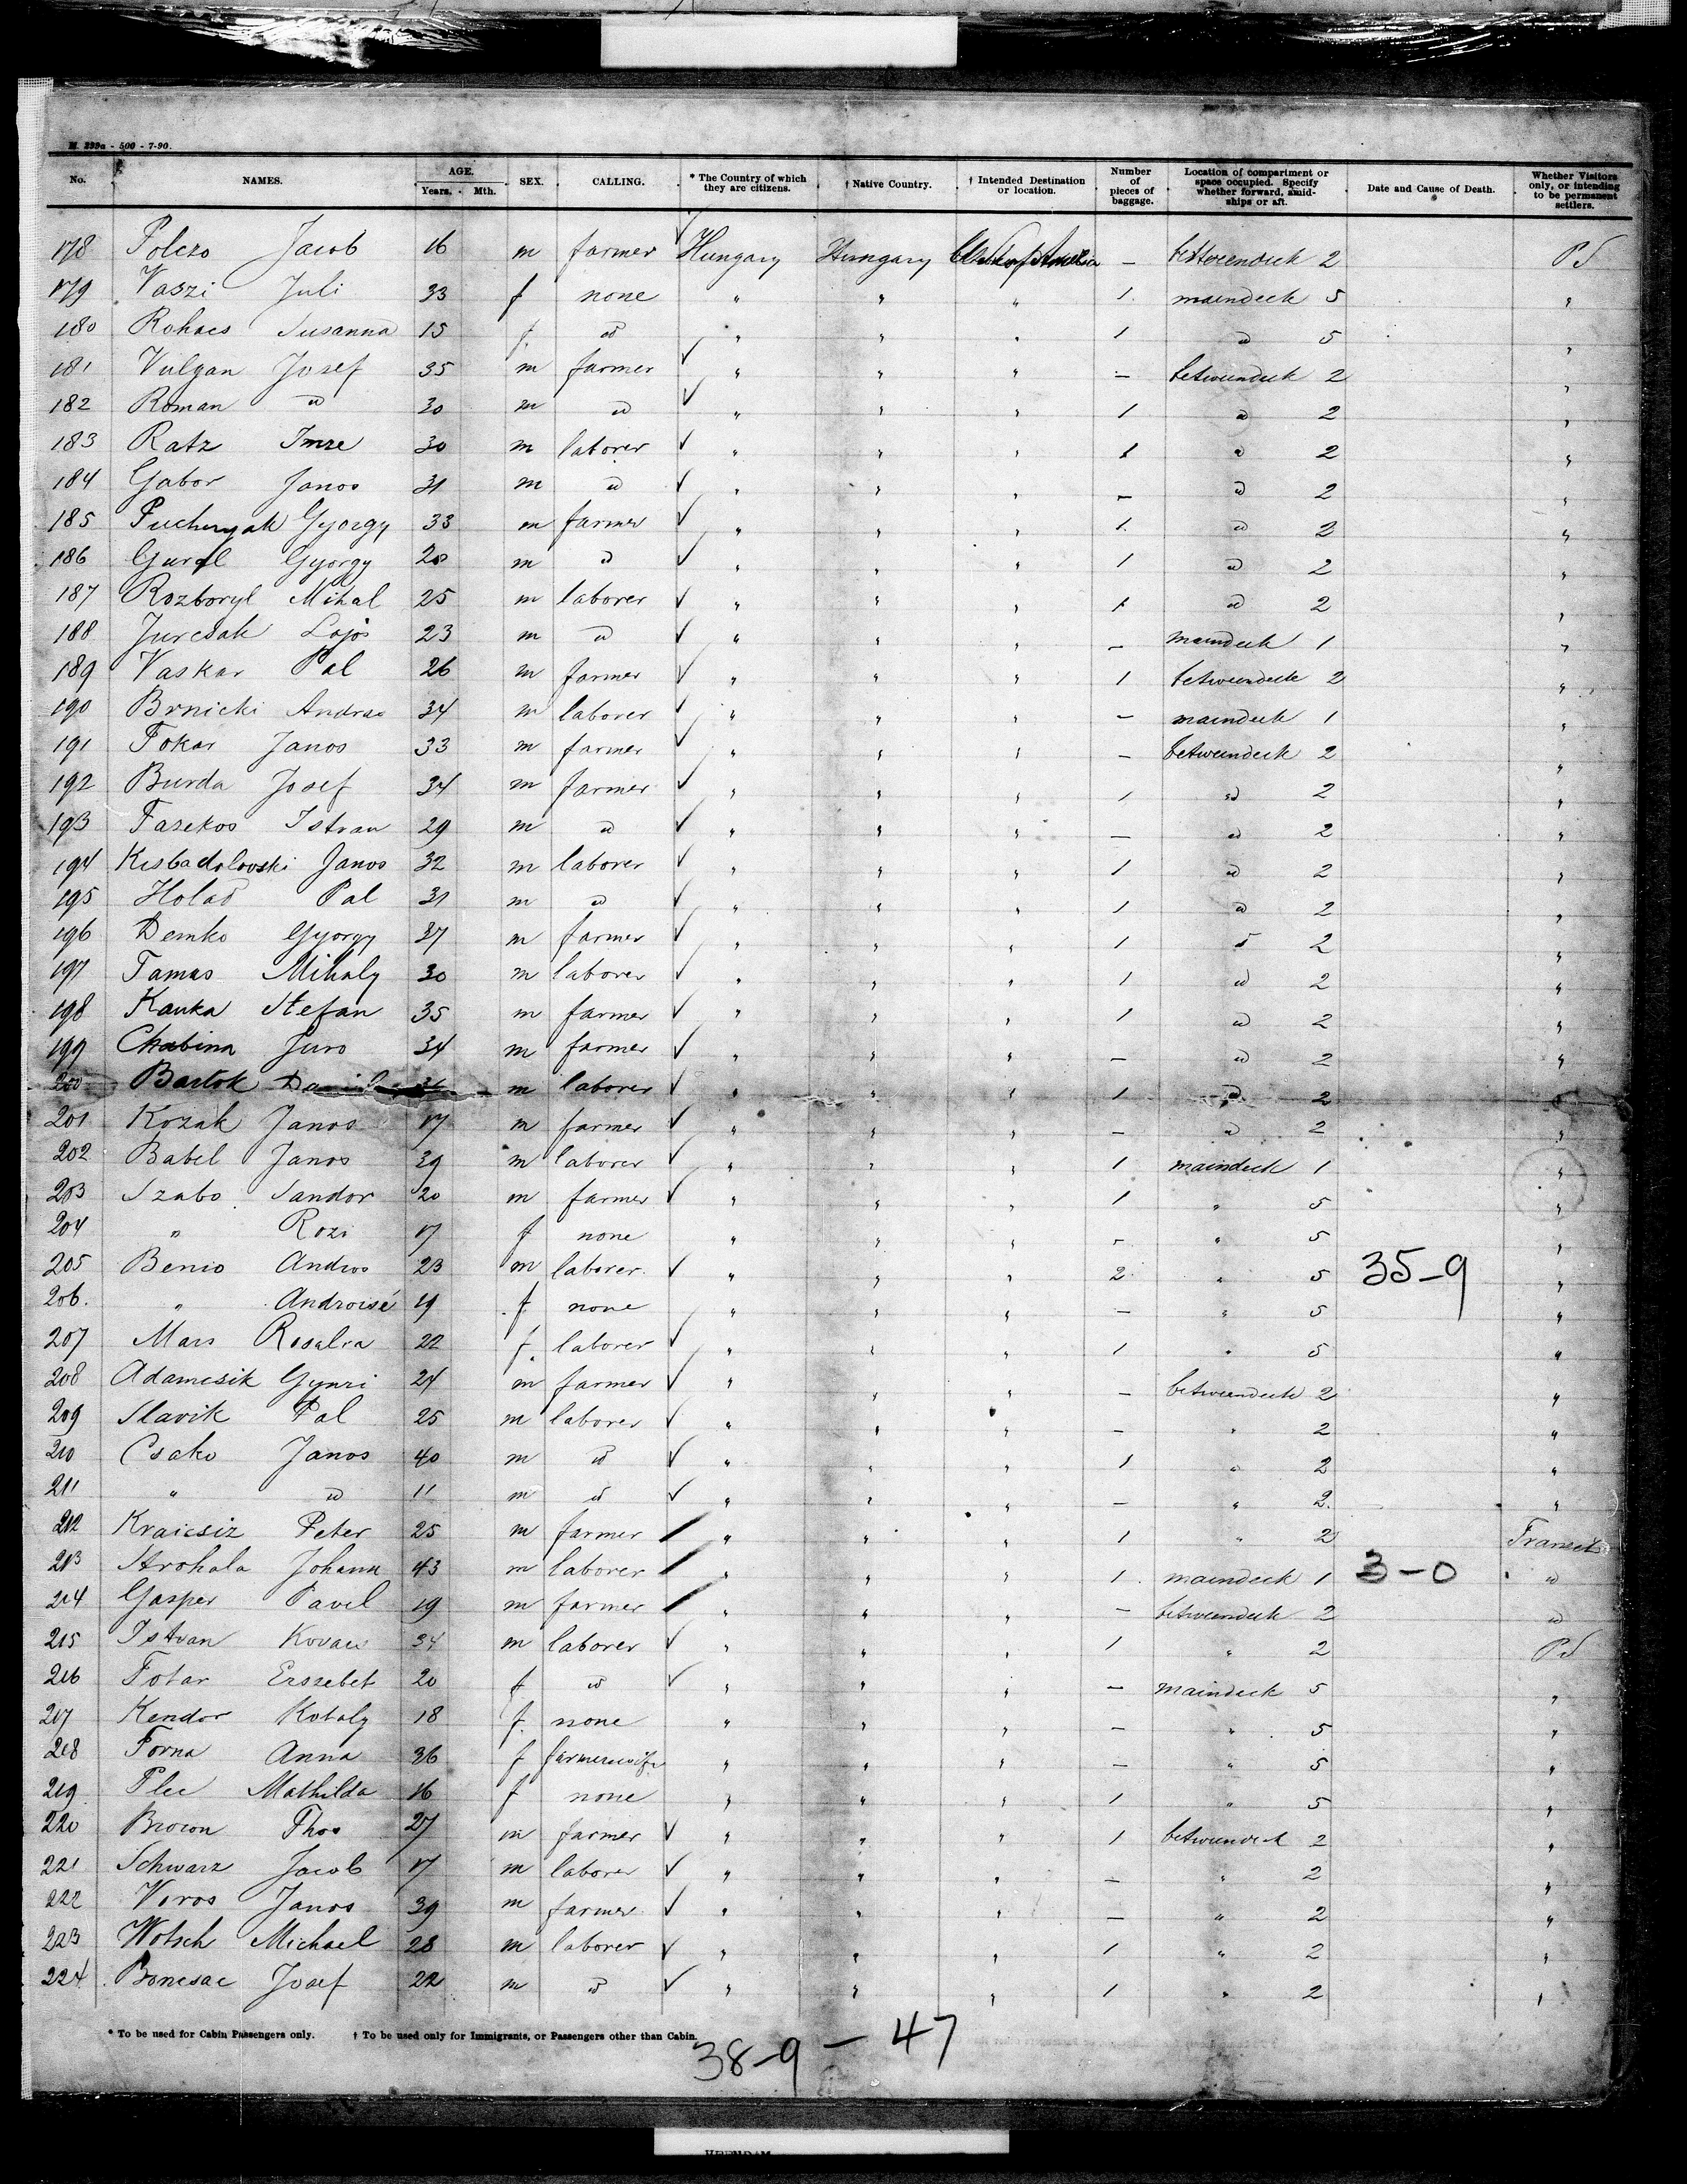 M. 299a - 500 - 7-90.
No. NAMES. AGE. Years. Mth. SEX. CALLING. * The Country of which they are citizens. † Native Country. † Intended Destination or location. Number of pieces of baggage. Location of compartment or space occupied. Specify whether forward, amidships or aft. Date and Cause of Death. Whether Visitors only, or intending to be permanent settlers.
178 Polczo Jacob 16 m farmer Hungary Hungary — betweendeck 2 PS
179 Vaszi Juli 33 f none " " " 1 maindeck 5 "
180 Rohacs Susanna 15 f. id " " " 1 id 5 "
181 Vulgan Josef 35 m farmer ✓ " " " — betweendeck 2 "
182 Roman id 30 m id ✓ " " " 1 id 2 "
183 Ratz Imre 30 m laborer ✓ " " " 1 id 2 "
184 Gabor Janos 31 m id ✓ " " " — id 2 "
185 Puchnyak Gyorgy 33 m farmer ✓ " " " 1 id 2 "
186 Gyorgy 20 m id ✓ " " " 1 id 2 "
187 Rozboryl Mihal 25 m laborer ✓ " " " 1 id 2 "
188 Jurcsak Lajos 23 m id ✓ " " " — maindeck 1 "
189 Vaskar Pal 26 m farmer ✓ " " " 1 betweendeck 2 "
190 Brnicki Andras 34 m laborer ✓ " " " — maindeck 1 "
191 Fokar Janos 33 m farmer ✓ " " " — betweendeck 2 "
192 Burda Josef 34 m farmer ✓ " " " 1 id 2 "
193 Fazekos Istvan 29 m id ✓ " " " — id 2 "
194 Kisbadolovski Janos 32 m laborer ✓ " " " 1 id 2 "
195 Pal 31 m id ✓ " " " 1 id 2 "
196 Demko Gyorgy 37 m farmer ✓ " " " 1 id 2 "
197 Tamas Mihaly 30 m laborer ✓ " " " 1 id 2 "
198 Kanka Stefan 35 m farmer ✓ " " " 1 id 2 "
199 Chabina Juro 34 m farmer ✓ " " " — id 2 "
200 Bartok m laborer ✓ " " " 1 id 2 "
201 Kozak Janos 17 m farmer ✓ " " " — id 2 "
202 Babel Janos 39 m laborer ✓ " " " 1 maindeck 1 "
203 Szabo Sandor 20 m farmer ✓ " " " 1 " 5 "
204 " Rozi 17 f none " " " — " 5 "
205 Benio Andros 23 m laborer ✓ " " " 2 " 5 35-9 "
206. " Androisé 19 f none " " " — " 5 "
207 Mars Rosalia 22 f. laborer ✓ " " " 1 " 5 "
208 Adamcsik Gynri 24 m farmer ✓ " " " — betweendeck 2 "
209 Slavik Pal 25 m laborer ✓ " " " — " 2 "
210 Csako Janos 40 m id ✓ " " " 1 " 2 "
211 " id 11 m id ✓ " " " — " 2 "
212 Kraicsiz Peter 25 m farmer / " " " 1 " 2 Transit
213 Strohala Johann 43 m laborer / " " " 1 maindeck 1 3-0 id
214 Gasper Pavel 19 m farmer / " " " — betweendeck 2 id
215 Istvan Kovacs 34 m laborer ✓ " " " 1 " 2 PS
216 Fotar Erssebet 20 f id ✓ " " " — maindeck 5 "
217 Kendor Kotaly 18 f. none " " " — " 5 "
218 Forna Anna 36 f farmerswife " " " — " 5 "
219 Plec Mathilda 16 f none " " " 1 " 5 "
220 Brown Thos 27 m farmer ✓ " " " 1 betweendeck 2 "
221 Schwarz Jacob 17 m laborer ✓ " " " — " 2 "
222 Voros Janos 39 m farmer ✓ " " " — " 2 "
223 Wotsch Michael 28 m laborer ✓ " " " 1 " 2 "
224 Boncsac Josef 22 m id ✓ " " " 1 " 2 "
* To be used for Cabin Passengers only. † To be used only for Immigrants, or Passengers other than Cabin.
38-9 — 47